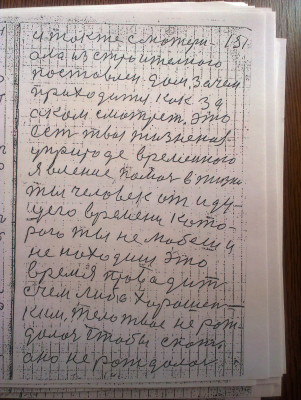 и так же смотер- 151
ала из строителного
поставлен дом. Зачем
приходити как за
оком смотрет. Это
ест твоя жизненая
у природе временного
явление. Помог в жизни
ты человек от иду-
щего времени кото-
рого ты не любеш и
не находиш. Это
время проводит
с чем либо хорошен-
ким, тело твое не рож-
далос чтобы
оно не рождалос